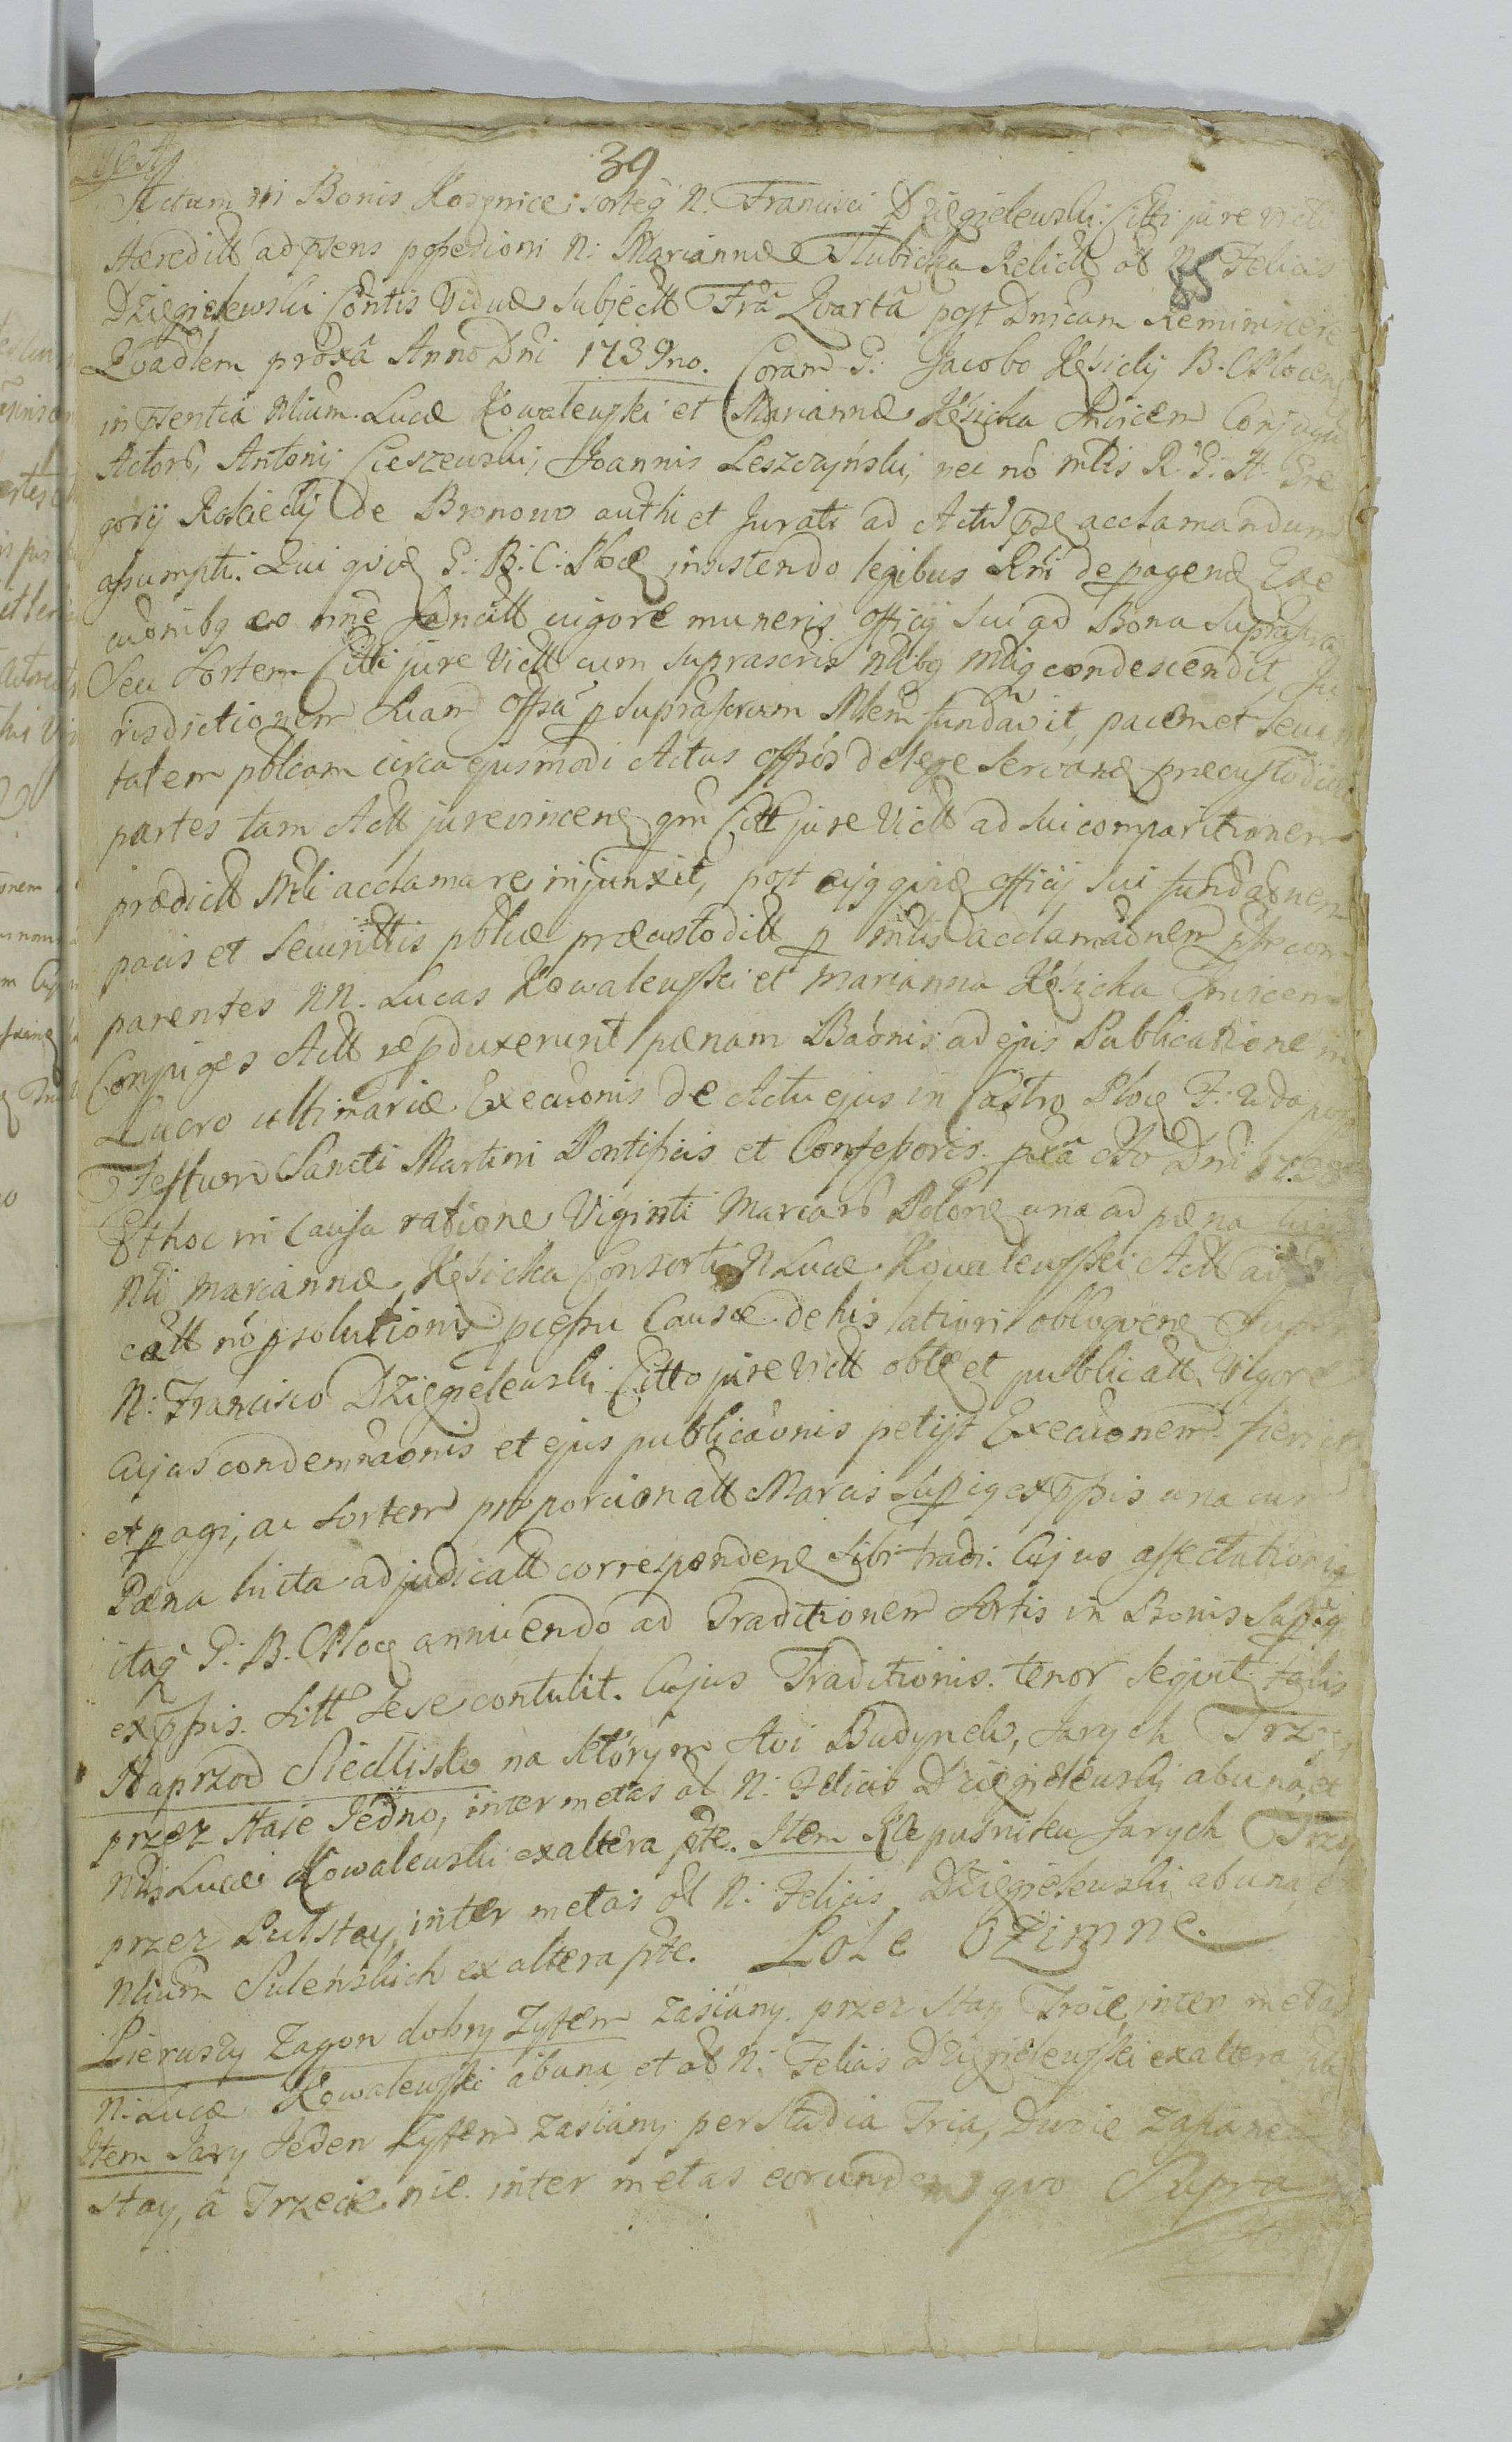 39
Actum in Bonis Kozynice sortes N. Francisci Dzięgielewski Citti jure victi
Hæreditt ad præsens possessioni N: Mariannæ Słubicka Relictt ol N. Felicis
85
Dzięgielewski Contis Viduæ Subjectt Fra Qvartâ post Dnicam Reminiscere
Qvadlem proxâ Anno Dni 1739no. Coram G: Jacobo Kęsicky B. C Plocen
in præsentiâ Nlium Lucæ Kowalewski et Mariannæ Kęsicka Invicem Conjugu
Actorū, Antonij Cieszewski, Joannis Leszczyński, nec nō mlis R. G: H. Gre
gorij Kościecky de Bronowo authi et Jurati ad Actū præ acclamandum
assumpti. Qui qvidē G: B: C: Ploc insistendo legibus Rni de pagenď Exe
cuōnibg eo nne sancitt vigore muneris officij Sui ad Bona Suprascra
Seu Sortem Citti jure Victt cum suprascris Nlibg Mlig condescendit, Ju
risdictionem Suam Offsā p suprascrum Mlem fundavit, pacem et Securi
tatem pblicam circa ejusmodi Actus offsōs de lege Servanď præcustodivit
partes tam Actt jurevincenď qm Citt jure Victt ad Sui comparitionem
prædictt Mli acclamare injunxit, post cujg qvidē officij Sui fundaōnem
pacis et Securittis pblicæ præcustoditt p mlis acclamaōnem ptr com
parentes NN. Lucas Kowalewski et Marianna Kęsicka Invicem
Conjuges Actt reproduxerunt pænam Baōnis ad ejus Publicationem in
Lucro ultimariæ Execuōnis de Actu ejus in Castro Ploc F: 2da post
Festum Sancti Martini Pontificis et Confessoris pxâ Ao Dni 1738
Et hoc in Causa ratione Viginti Marcarū Polonď una ad pæna
Nli Mariannæ Kęsicka Consorti N Lucæ Kowalewski Actt
catt nō psolutionis pcessu Causæ de his latiori obloqvenď Super
N: Francisco Dzięgielewski Citto jure Victt obtē et publicatt. Vigore
Cujus condemnaōnis et ejus publicaōnis petijt Execuōnem fieri et
et pagi, ac Sortem proporcionatt Marcis Supig expssis una cum
Pæna luita adjudicatt correspondenď Sibi tradi. Cujus affectationig
itaq G: B. C Ploc annuendo ad Traditionem Sortis in Bonis Supig
expssis Sitt Sese contulit. Cujus Traditionis tenor seqvit talis
Naprzod Siedlisko na którym stoi Budynek, Jarych Trzy
przez staie Jedno, inter metas ol N: Felicis Dzięgielewski ab una, et
Nlis Lucæ Kowalewski ex altera pte. Item Klepusnisku Jarych Trzy
przez Puł stay, inter metas ol N: Felicis Dzięgielewski ab una, et
Nlium Suleńskich ex altera pte. Pole Ozimne.
Pierwszy Zagon dobry Zytem zasiany przez stay Troie, inter metas
N: Lucæ Kowalewski ab una, et ol N: Felicis Dzięgielewski ex altera pte
Item Jary Jeden Zytem zasiany per Stadia Tria, Dwoie zasiane
stay, a Trzecie nie. inter metas eorundem qvo Supra
Item